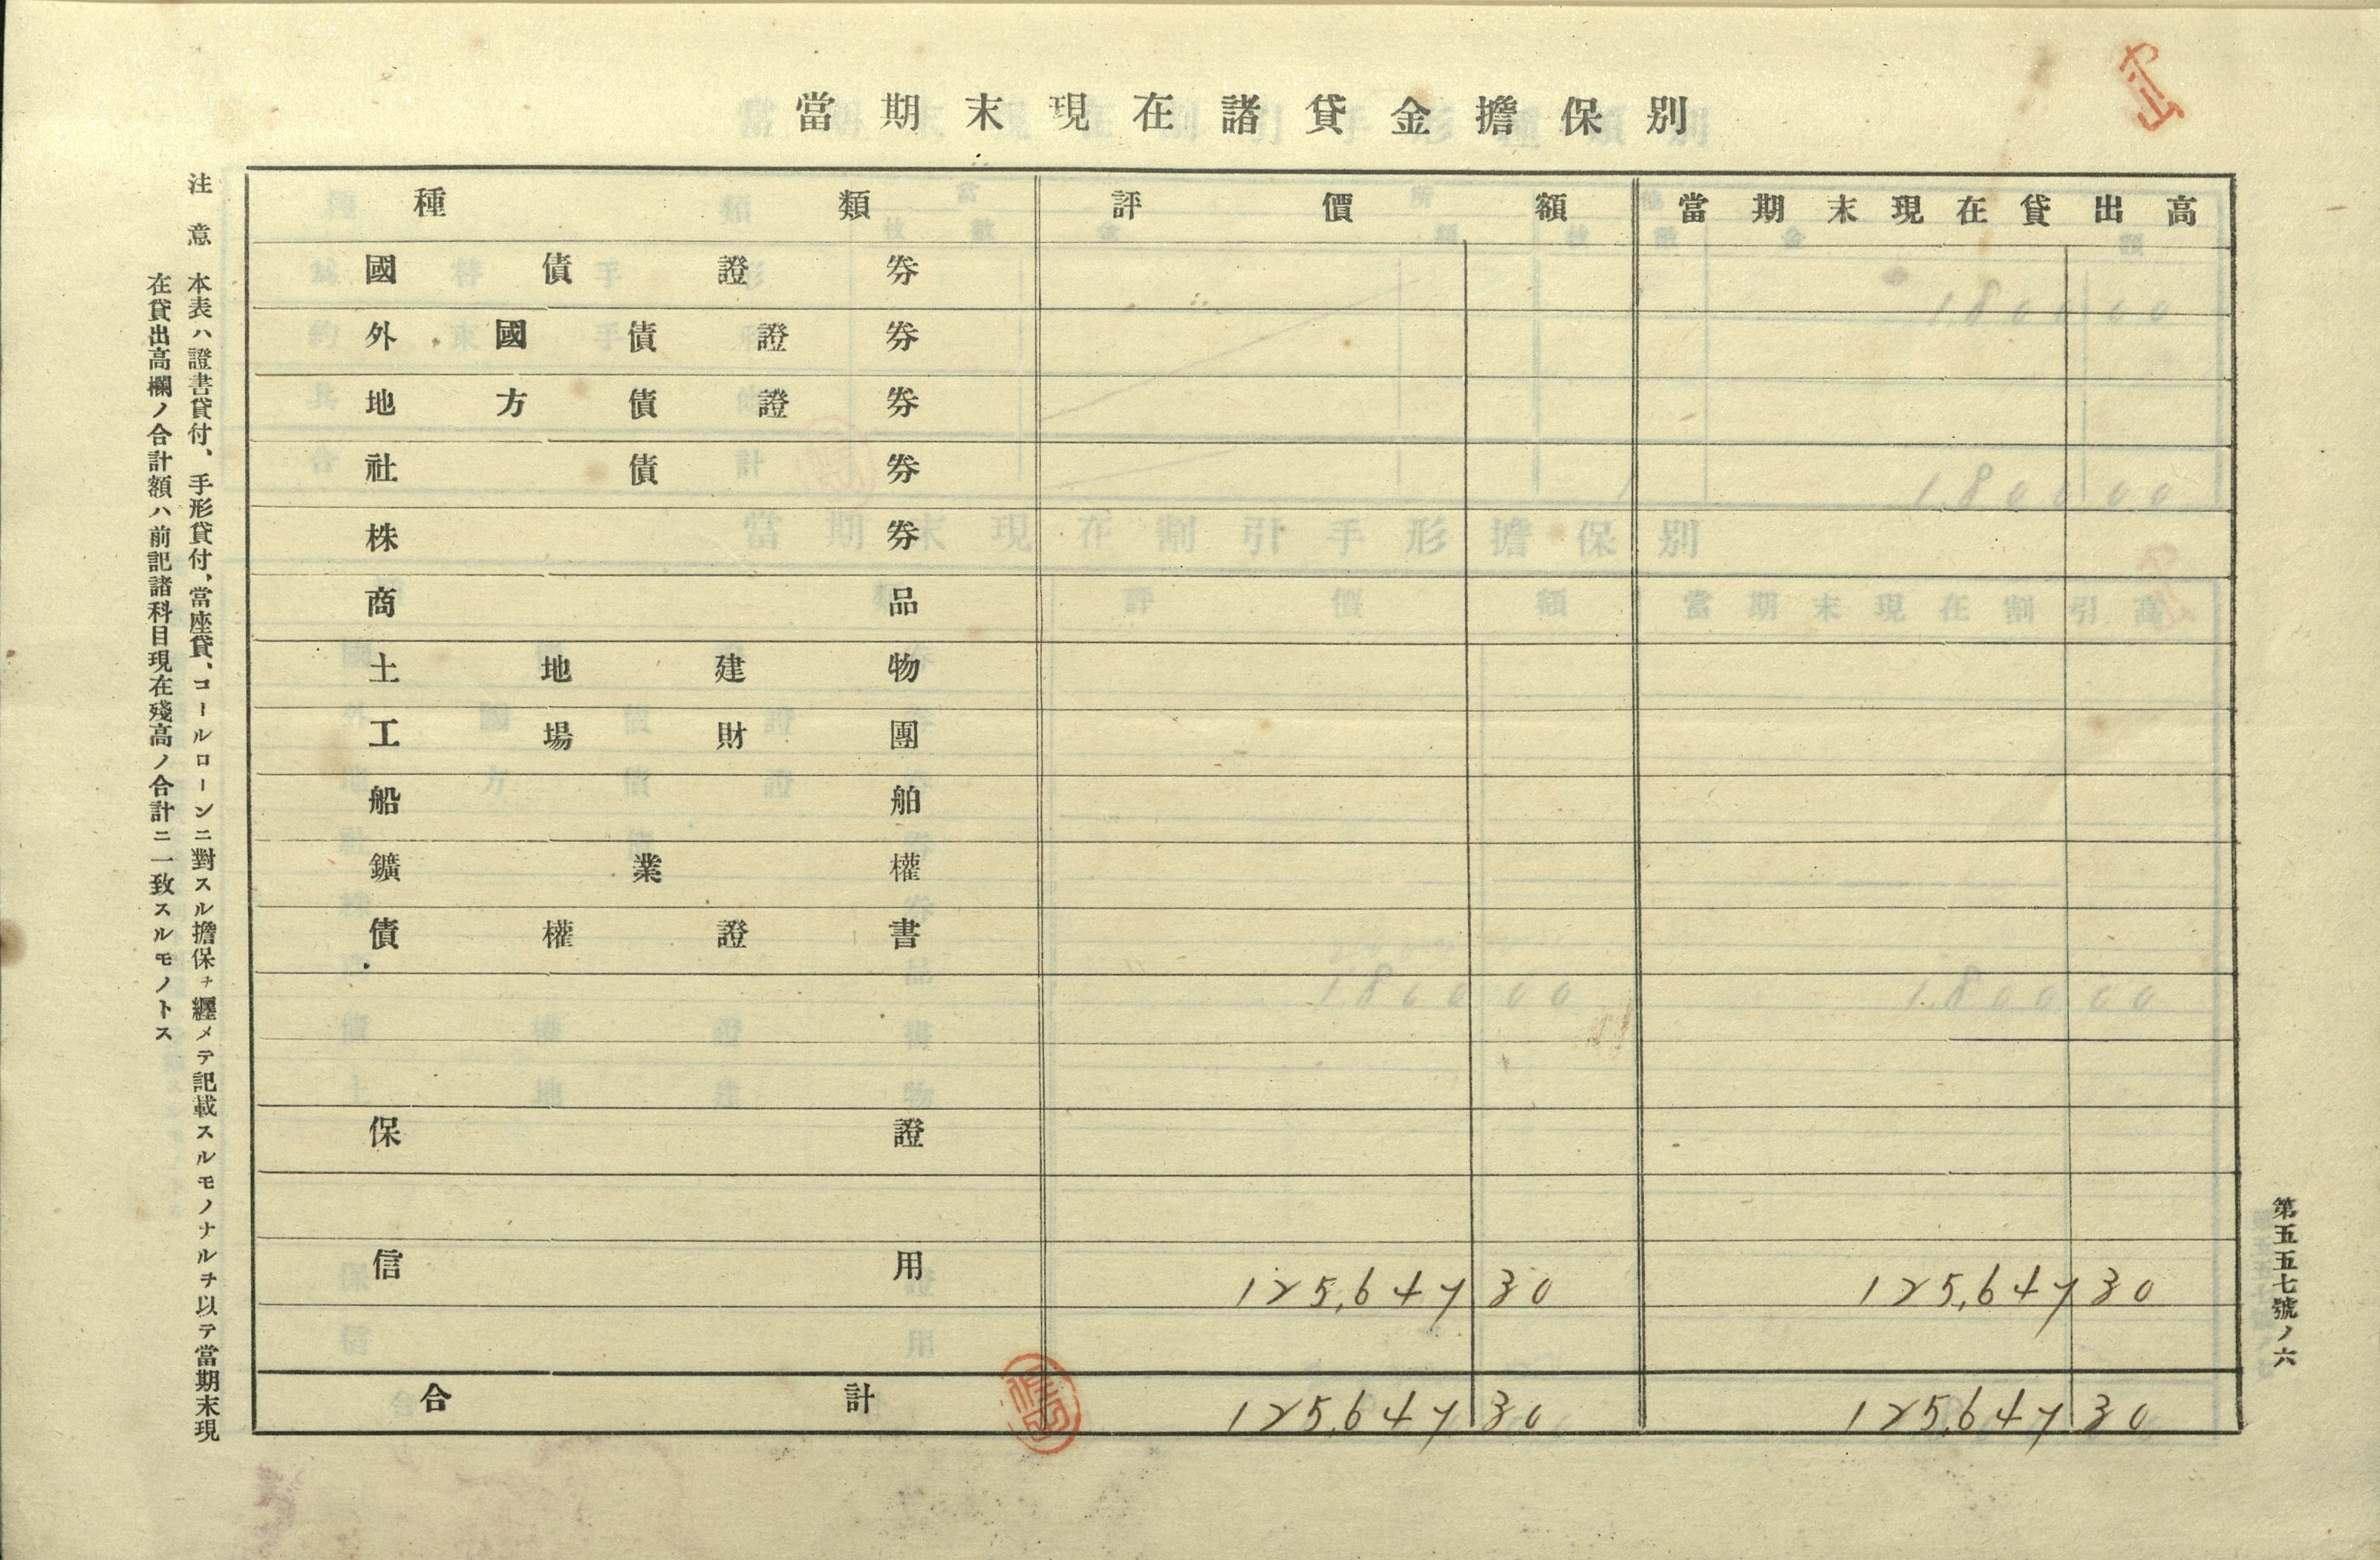 當期末現在諸貸金擔保別
種類 評價額 當期末現在貸出高
國債證券
外國債證券
地方債證券
社債券
株券
商品
土地建物
工場財團
船舶
鑛業權
債權證書
保證
信用 125,647 30 125,647 30
合計 125,647 30 125,647 30
注意 本表ハ證書貸付、手形貸付、當座貸、コールローンニ對スル擔保ヲ纒メテ記載スルモノナルヲ以テ當期末現
在貸出高欄ノ合計額ハ前記諸科目現在殘高ノ合計ニ一致スルモノトス
第五五七號ノ六